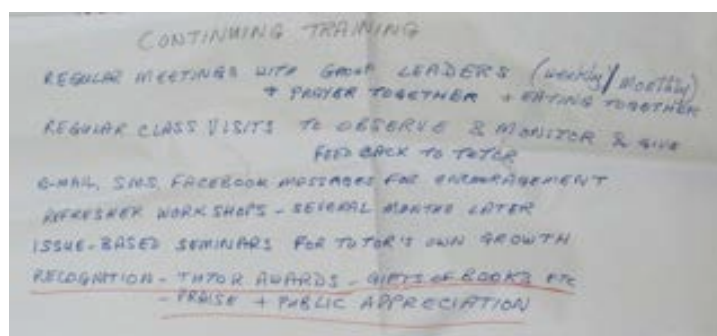 CONTINUING TRAINING
REGULAR MEETINGS WITH GROUP LEADERS (weekly/monthly)
+ PRAYER TOGETHER + EATING TOGETHER
REGULAR CLASS VISITS TO OBSERVE & MONITOR & GIVE
FEED BACK TO TUTOR
E-MAIL, SMS, FACEBOOK MESSAGES FOR ENCOURAGEMENT
REFRESHER WORKSHOPS - SEVERAL MONTHS LATER
ISSUE-BASED SEMINARS FOR TUTOR'S OWN GROWTH
RECOGNITION - TUTOR AWARDS - GIFTS OF BOOKS ETC
- PRAISE + PUBLIC APPRECIATION